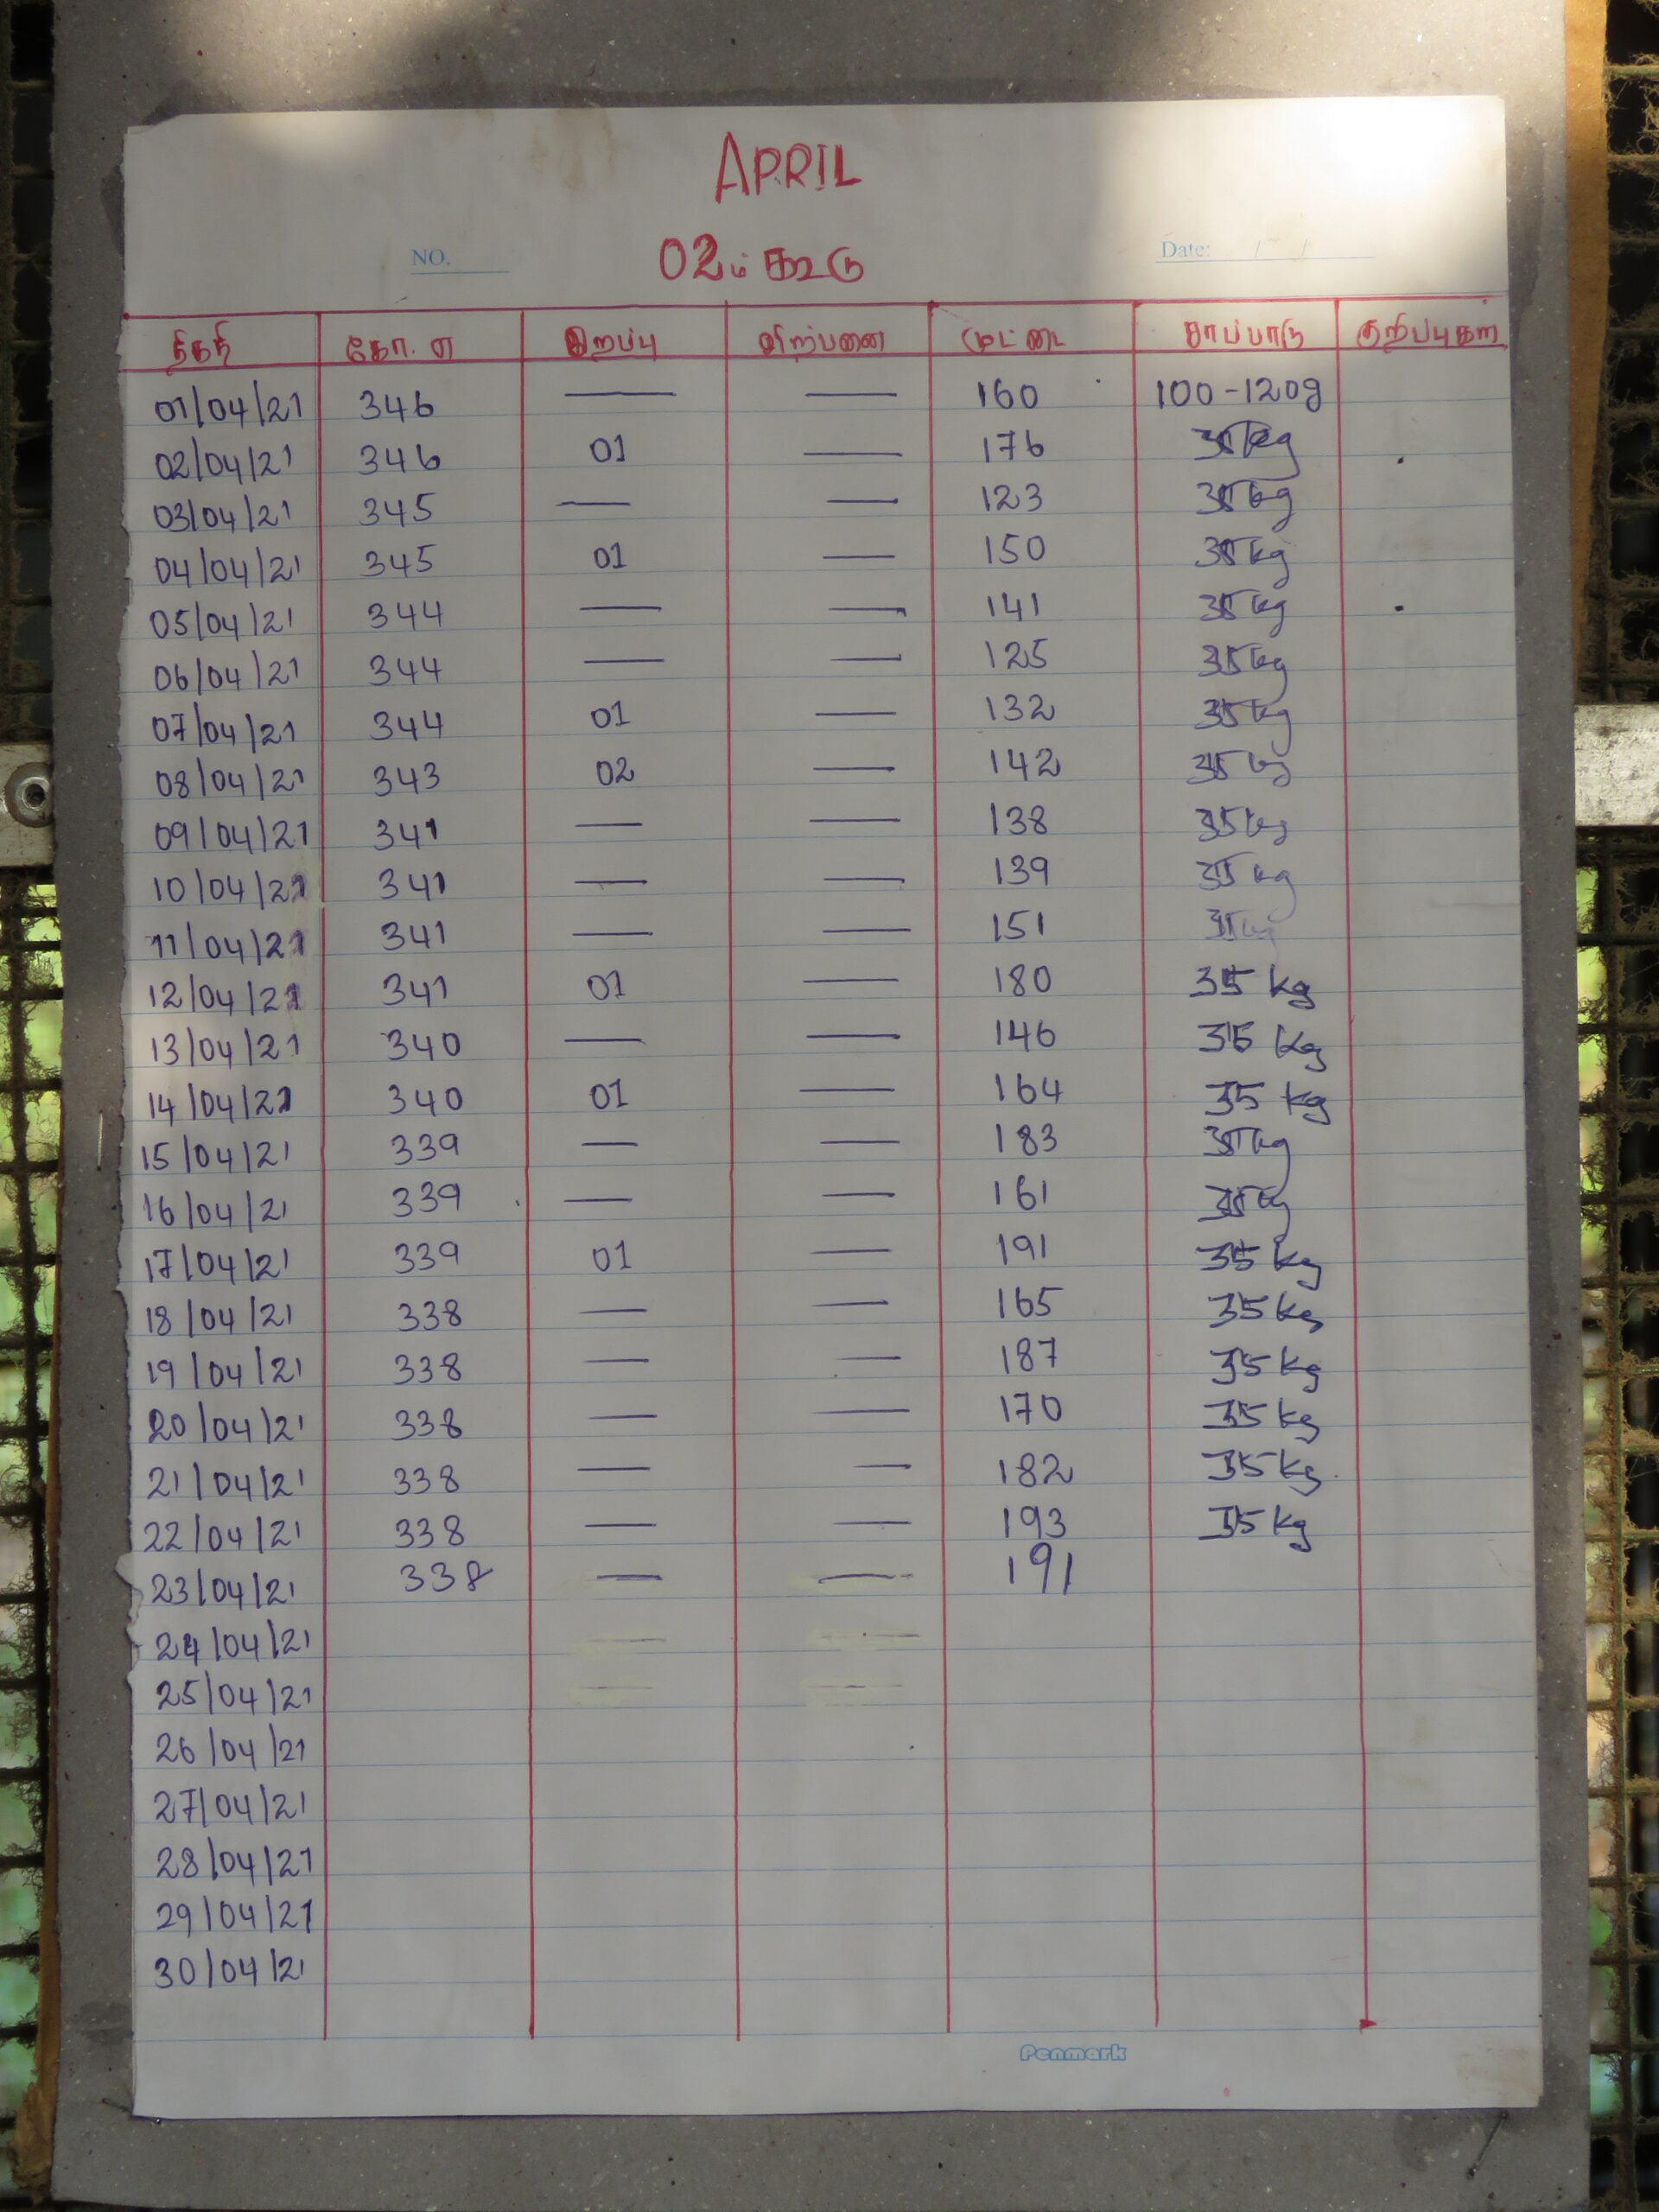 APRIL
NO.
02ம் கூடு
Date: / /
திகதி கோ.எ இறப்பு விற்பனை முட்டை சாப்பாடு குறிப்புகள்
01/04/21 346 — — 160 100-120g
02/04/21 346 01 — 176 35kg
03/04/21 345 — — 123 35kg
04/04/21 345 01 — 150 35kg
05/04/21 344 — — 141 35kg
06/04/21 344 — — 125 35kg
07/04/21 344 01 — 132 35kg
08/04/21 343 02 — 142 35kg
09/04/21 341 — — 138 35kg
10/04/21 341 — — 139 35kg
11/04/21 341 — — 151 35kg
12/04/21 341 01 — 180 35 kg
13/04/21 340 — — 146 35 kg
14/04/21 340 01 — 164 35 kg
15/04/21 339 — — 183 35kg
16/04/21 339 — — 161 35kg
17/04/21 339 01 — 191 35 kg
18/04/21 338 — — 165 35kg
19/04/21 338 — — 187 35kg
20/04/21 338 — — 170 35kg
21/04/21 338 — — 182 35kg
22/04/21 338 — — 193 35kg
23/04/21 338 — — 191
24/04/21
25/04/21
26/04/21
27/04/21
28/04/21
29/04/21
30/04/21
Penmark